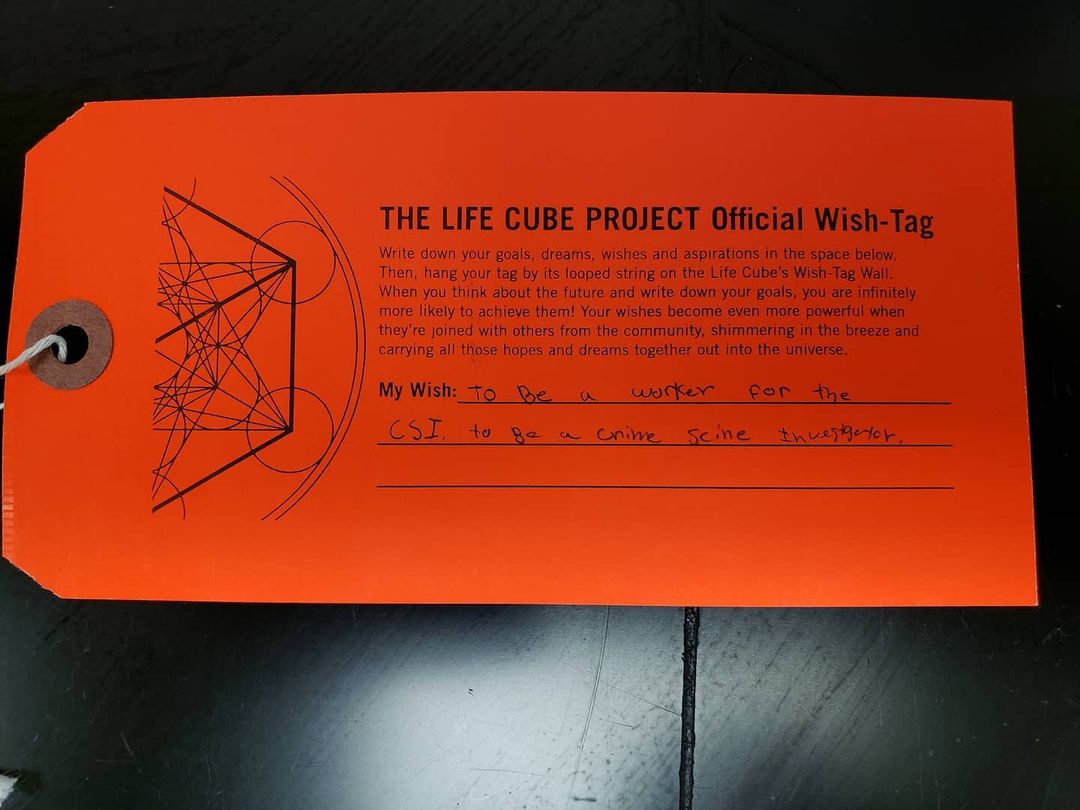 THE LIFE CUBE PROJECT Official Wish-Tag
Write down your goals, dreams, wishes and aspirations in the space below.
Then, hang your tag by its looped string on the Life Cube's Wish-Tag Wall.
When you think about the future and write down your goals, you are infinitely
more likely to achieve them! Your wishes become even more powerful when
they're joined with others from the community, shimmering in the breeze and
carrying all those hopes and dreams together out into the universe.
My Wish: To Be a worker for the
CSI. to Be a crime scine Investgator.